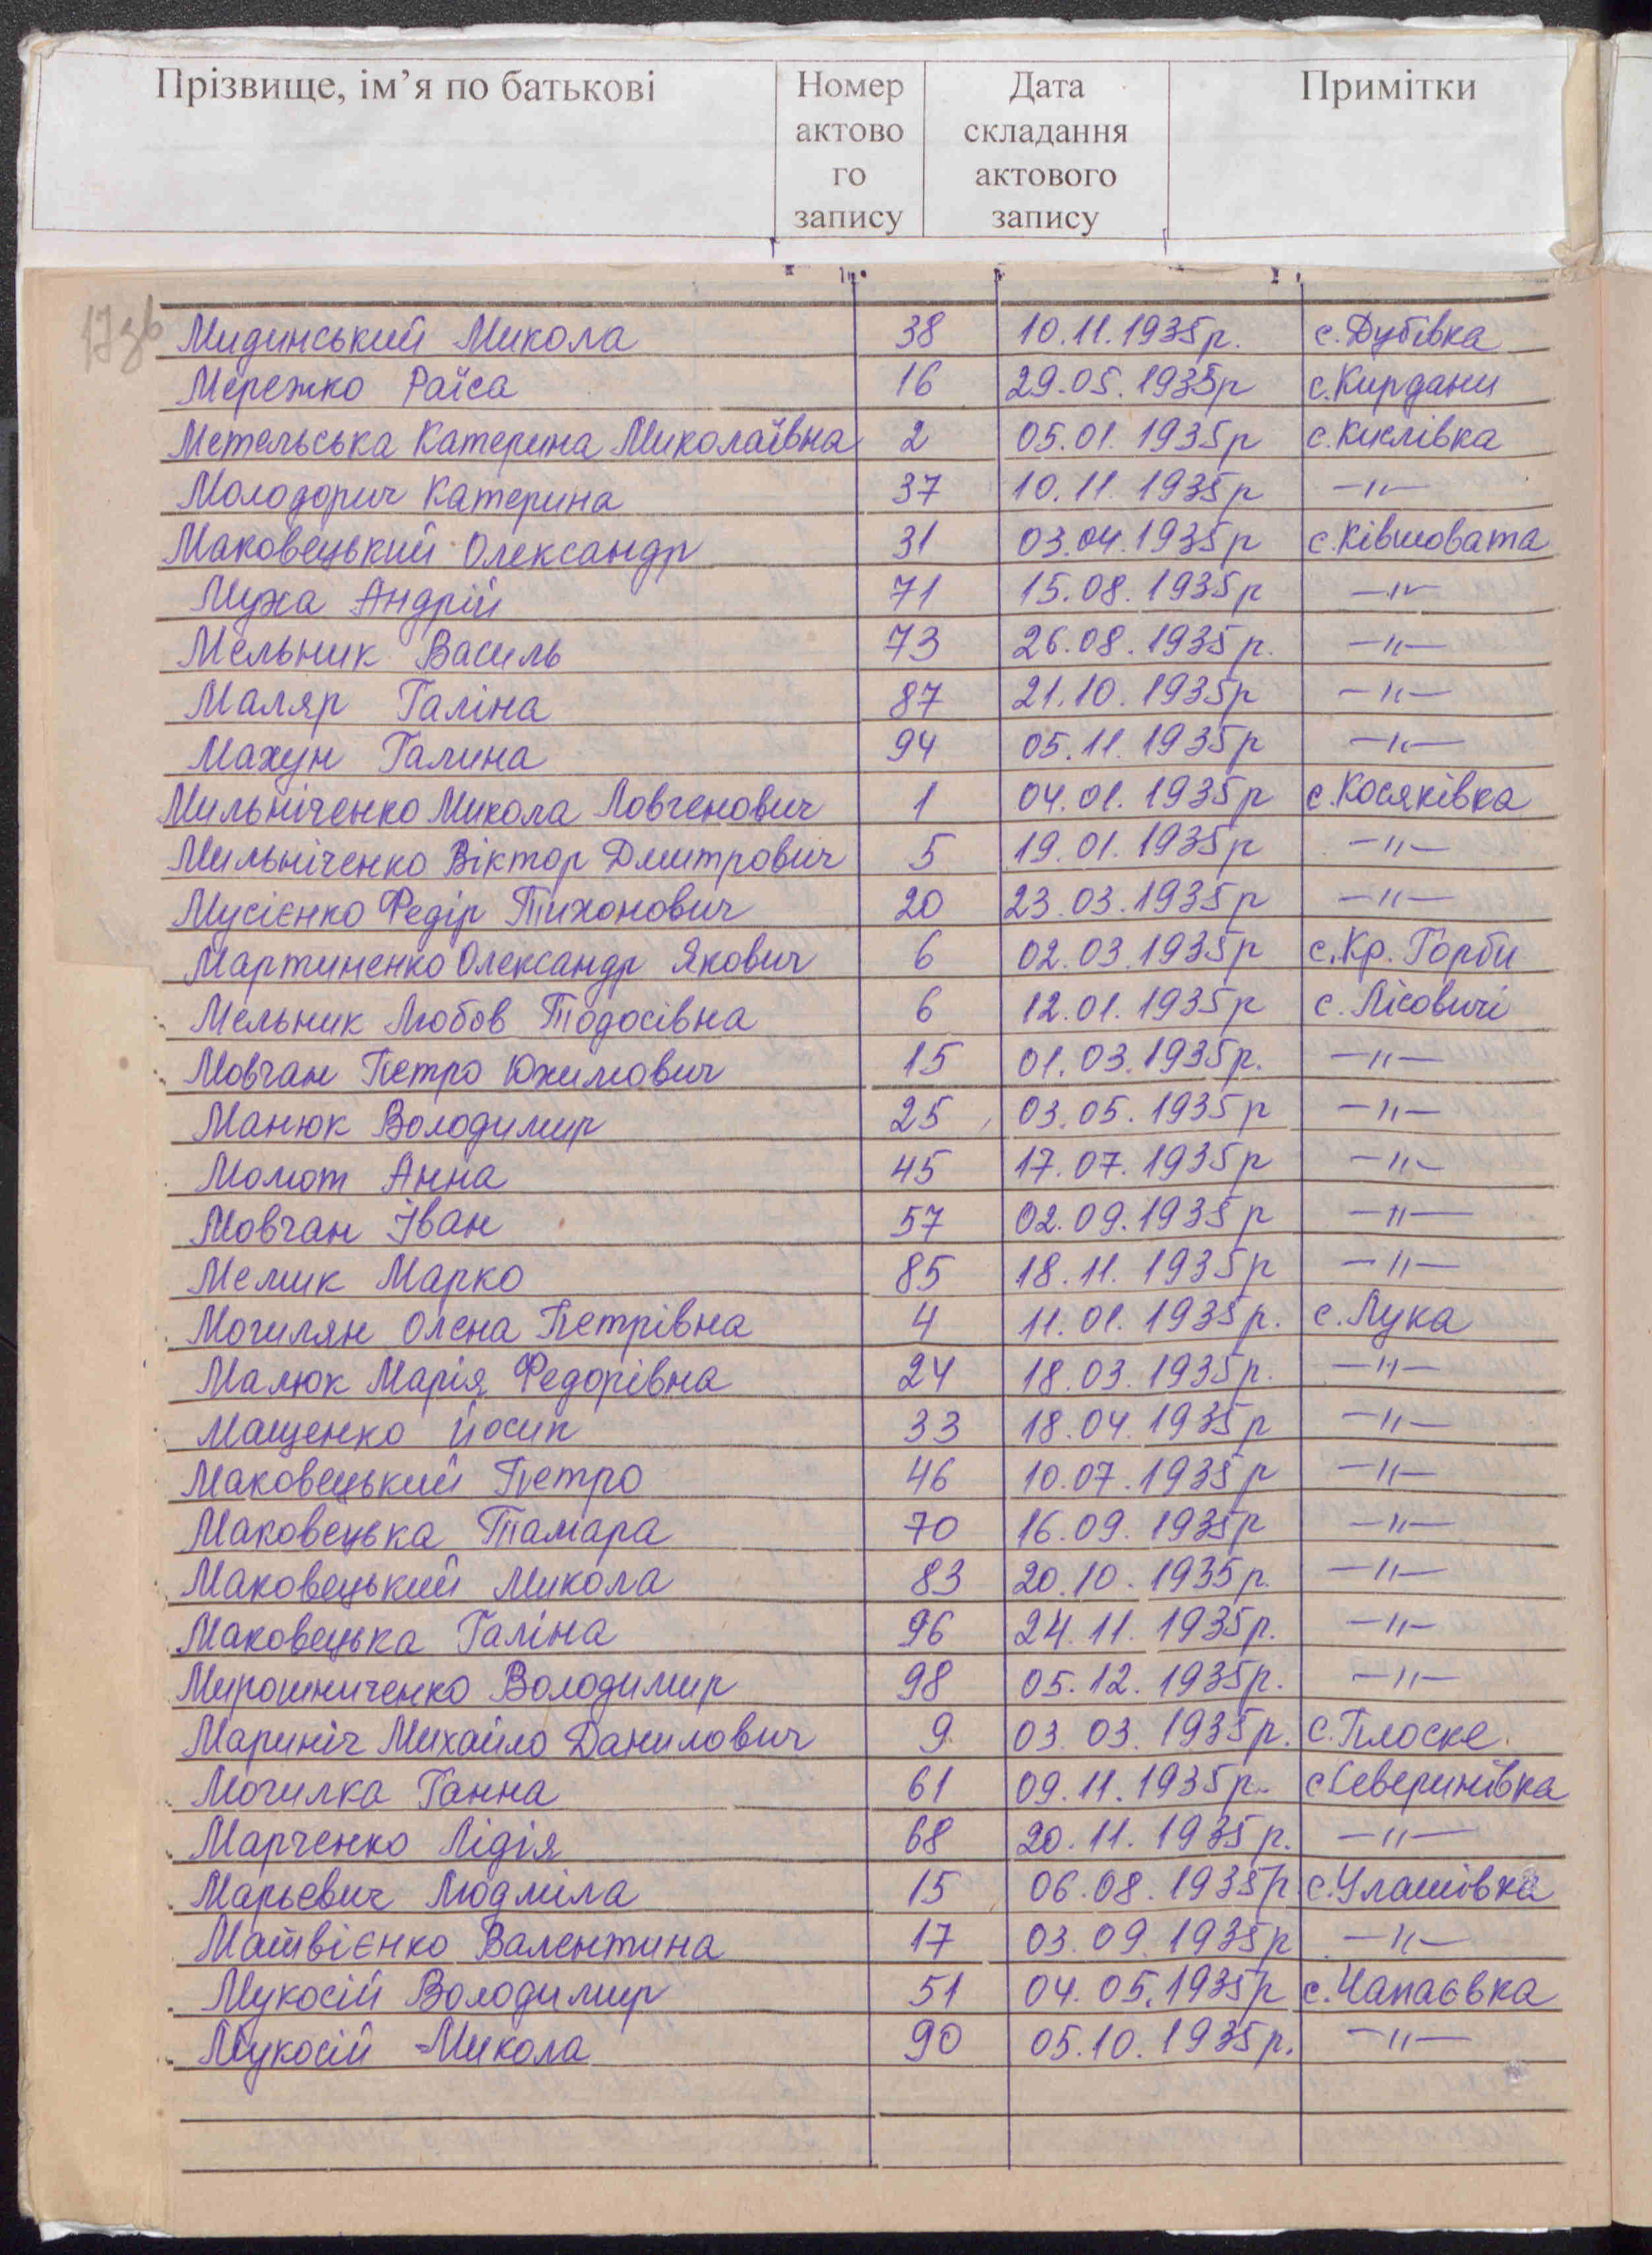 Прізвище, ім’я по батькові Номер актово го запису Дата складання актового запису Примітки
17зв
Мидинський Микола 38 10.11.1935р. с.Дубівка
Мережко Раїса 16 29.05.1935р с.Кирдани
Метельська Катерина Миколаївна 2 05.01.1935р с.Кислівка
Молодорич Катерина 37 10.11.1935р —"—
Маковецький Олександр 31 03.04.1935р с.Ківшовата
Муха Андрій 71 15.08.1935р —"—
Мельник Василь 73 26.08.1935р. —"—
Маляр Галіна 87 21.10.1935р —"—
Махун Галина 94 05.11.1935р —"—
Мильніченко Микола Ловченович 1 04.01.1935р с.Косяківка
Мильніченко Віктор Дмитрович 5 19.01.1935р —"—
Мусієнко Федір Тихонович 20 23.03.1935р —"—
Мартиненко Олександр Якович 6 02.03.1935р с.Кр. Горби
Мельник Любов Тодосівна 6 12.01.1935р с. Лісовичі
Мовчан Петро Юхимович 15 01.03.1935р. —"—
Манюк Володимир 25 03.05.1935р —"—
Момот Анна 45 17.07.1935р —"—
Мовчан Іван 57 02.09.1935р —"—
Мелик Марко 85 18.11.1935р —"—
Могилян Олена Петрівна 4 11.01.1935р. с.Лука
Малюк Марія Федорівна 24 18.03.1935р. —"—
Мащенко Йосип 33 18.04.1935р —"—
Маковецький Петро 46 10.07.1935р —"—
Маковецька Тамара 70 16.09.1935р —"—
Маковецький Микола 83 20.10.1935р. —"—
Маковецька Галіна 96 24.11.1935р. —"—
Мирошниченко Володимир 98 05.12.1935р. —"—
Мариніч Михайло Данилович 9 03.03.1935р. с.Плоске
Могилка Ганна 61 09.11.1935р. с.Северинівка
Марченко Лідія 68 20.11.1935р. —"—
Марьевич Людміла 15 06.08.1935р с.Улашівка
Матвієнко Валентина 17 03.09.1935р —"—
Мукосій Володимир 51 04.05.1935р с.Чапаєвка
Мукосій Микола 90 05.10.1935р. —"—